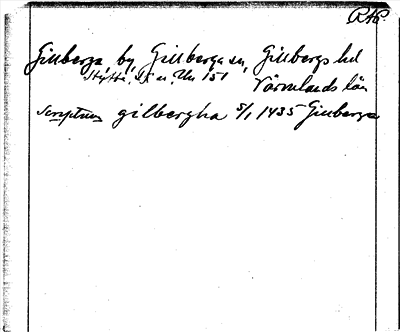 RAp.
Gillberga, by, Gillberga sn, Gillbergs hd
Värmlands län
scriptum gilbergha 5/1 1435 Gillberga